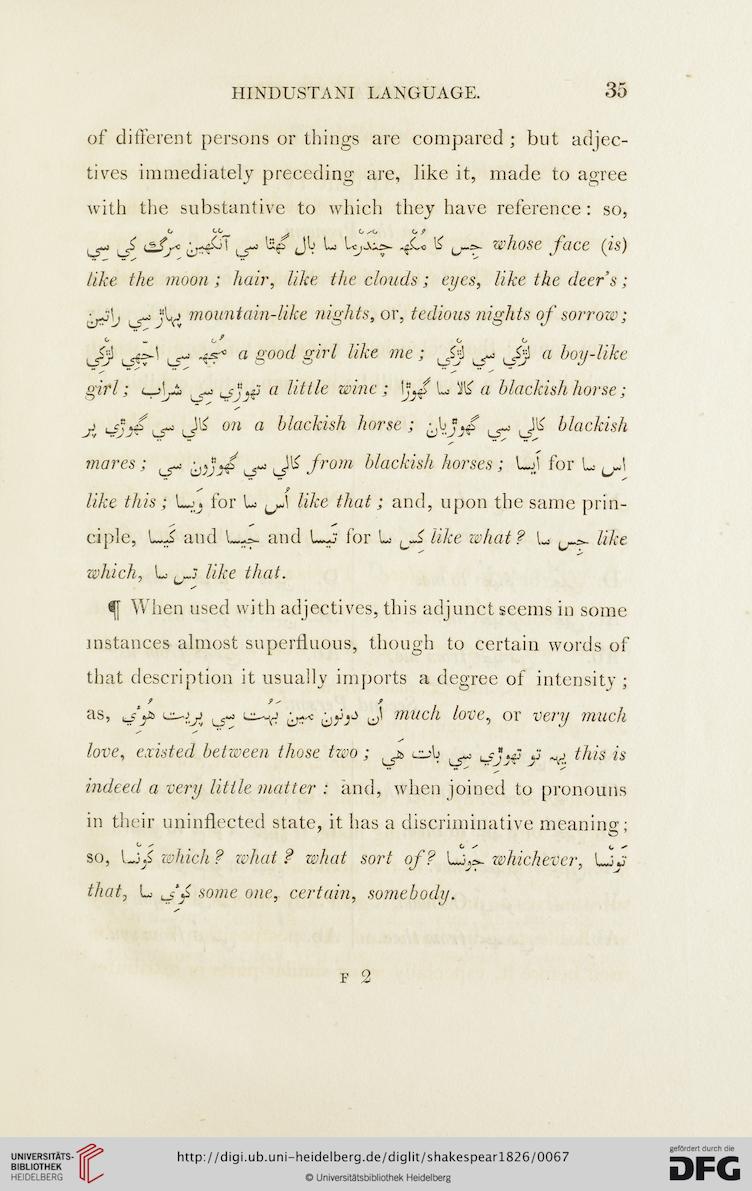 HINDUSTANI LANGUAGE. 35
of different persons or things are compared ; but adjec-
tives immediately preceding are, like it, made to agree
with the substantive to which they have reference : so,
جِس کا مُکْھہ چَنْدْرما سا بال گھٹا سي آنْکھیں مِرْگ کي سي whose face (is)
like the moon ; hair, like the clouds ; eyes, like the deer's ;
پہاڑ سي راتیں mountain-like nights, or, tedious nights of sorrow ;
مُجھہ سي اچّھي لڑْکي a good girl like me ; لڑْکي سي لڑْکي a boy-like
girl ; تھوڑي سي شراب a little wine ; کالا سا گھوڑا a blackish horse ;
کالي سي گھوڑي پر on a blackish horse ; کالي سي گھوڑیاں blackish
mares ; کالي سي گھوڑوں سي from blackish horses ; اَیسا for اِس سا
like this ; وَیسا for اُس سا like that ; and, upon the same prin-
ciple, کَیسا and جَیسا and تَیسا for کِس سا like what ? جِس سا like
which, تِس سا like that.
¶ When used with adjectives, this adjunct seems in some
instances almost superfluous, though to certain words of
that description it usually imports a degree of intensity ;
as, اُن دونوں میں بَہُت سي پریت هُوئي much love, or very much
love, existed between those two ; یہہ تو تھوڑي سي بات هَي this is
indeed a very little matter : and, when joined to pronouns
in their uninflected state, it has a discriminative meaning ;
so, کَونْسا which ? what ? what sort of ? جَونْسا whichever, تَونْسا
that, کوئي سا some one, certain, somebody.
F 2
UNIVERSITÄTS-
BIBLIOTHEK
HEIDELBERG
http://digi.ub.uni-heidelberg.de/diglit/shakespear1826/0067
© Universitätsbibliothek Heidelberg
gefördert durch die
DFG